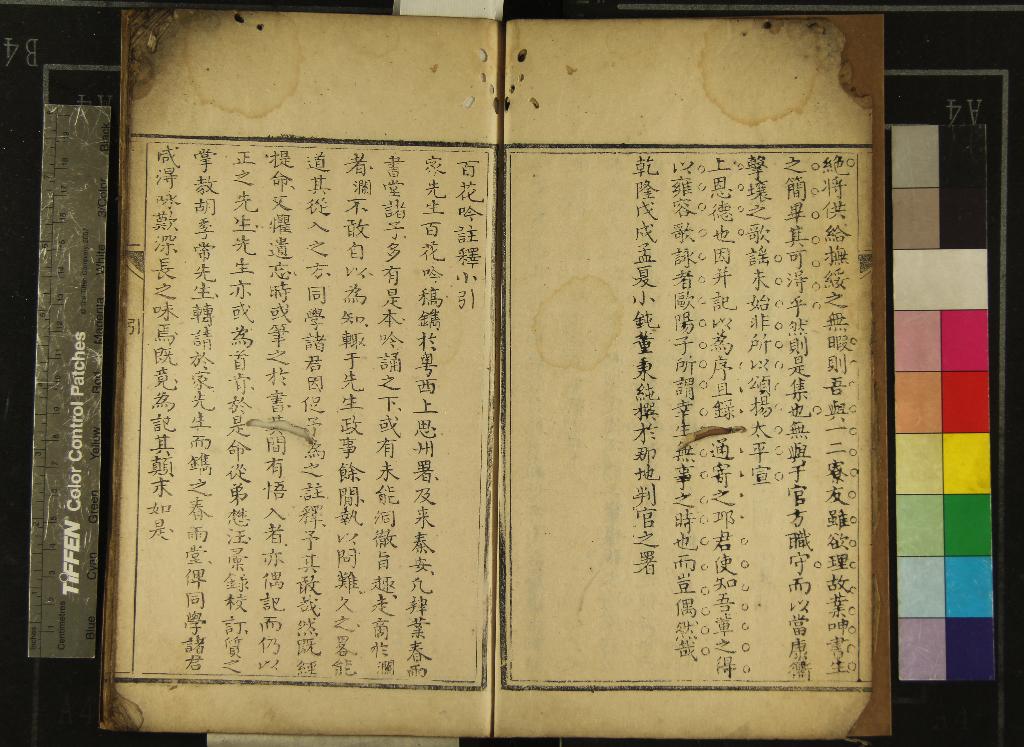 絶將供給撫綏之無暇則吾與一二寮友雖欲理故業呻書生
之簡畢其可得乎然則是集也無與于官方職守而以當康衢
擊壤之歌謠未始非所以頌揚太平宣
上恩德也因并記以為序且錄一通寄之邛君使知吾輩之得
以雍容歌詠者歐陽子所謂幸生無事之時也而豈偶然哉
乾隆戊戌孟夏小鈍董秉純撰於那地判官之署
百花吟註釋小引
家先生百花吟稿鐫於粵西上思州署及来秦安凡肄業春雨
書堂諸子多有是本吟誦之下或有未能洞徹旨趣走商於瀾
者瀾不敢自以為知輒于先生政事餘閒執以問難久之畧能
道其從入之方同學諸君因促予為之註釋予其敢哉然既經
提命又懼遺忘時或筆之於書其間有悟入者亦偶記而仍以
正之先生先生亦或為首肯於是命從弟懋汪彙錄校訂質之
掌教胡季常先生轉請於家先生而鐫之春雨堂俾同學諸君
咸得咏歎深長之味焉既竟為記其顛末如是
引
TIFFEN Color Control Patches
Blue
Cyan
Green
Yellow
Red
Magenta
White
3/Color
Black
Centimetres
Inches
B4
A4